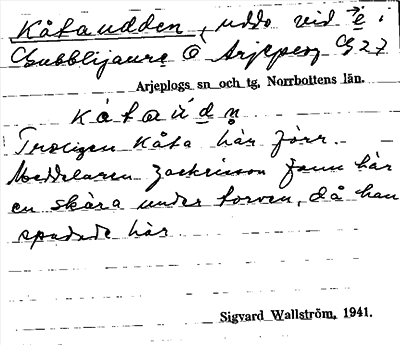 Kåtaudden, udde vid
Gubblijaure Arjeplog G 27
Arjeplogs sn och tg, Norrbottens län.
kåtaúdn
Troligen kåta här förr.
Meddelaren Zackrisson fann här
en skåra under torven, då han
spadede här
Sigvard Wallström, 1941.